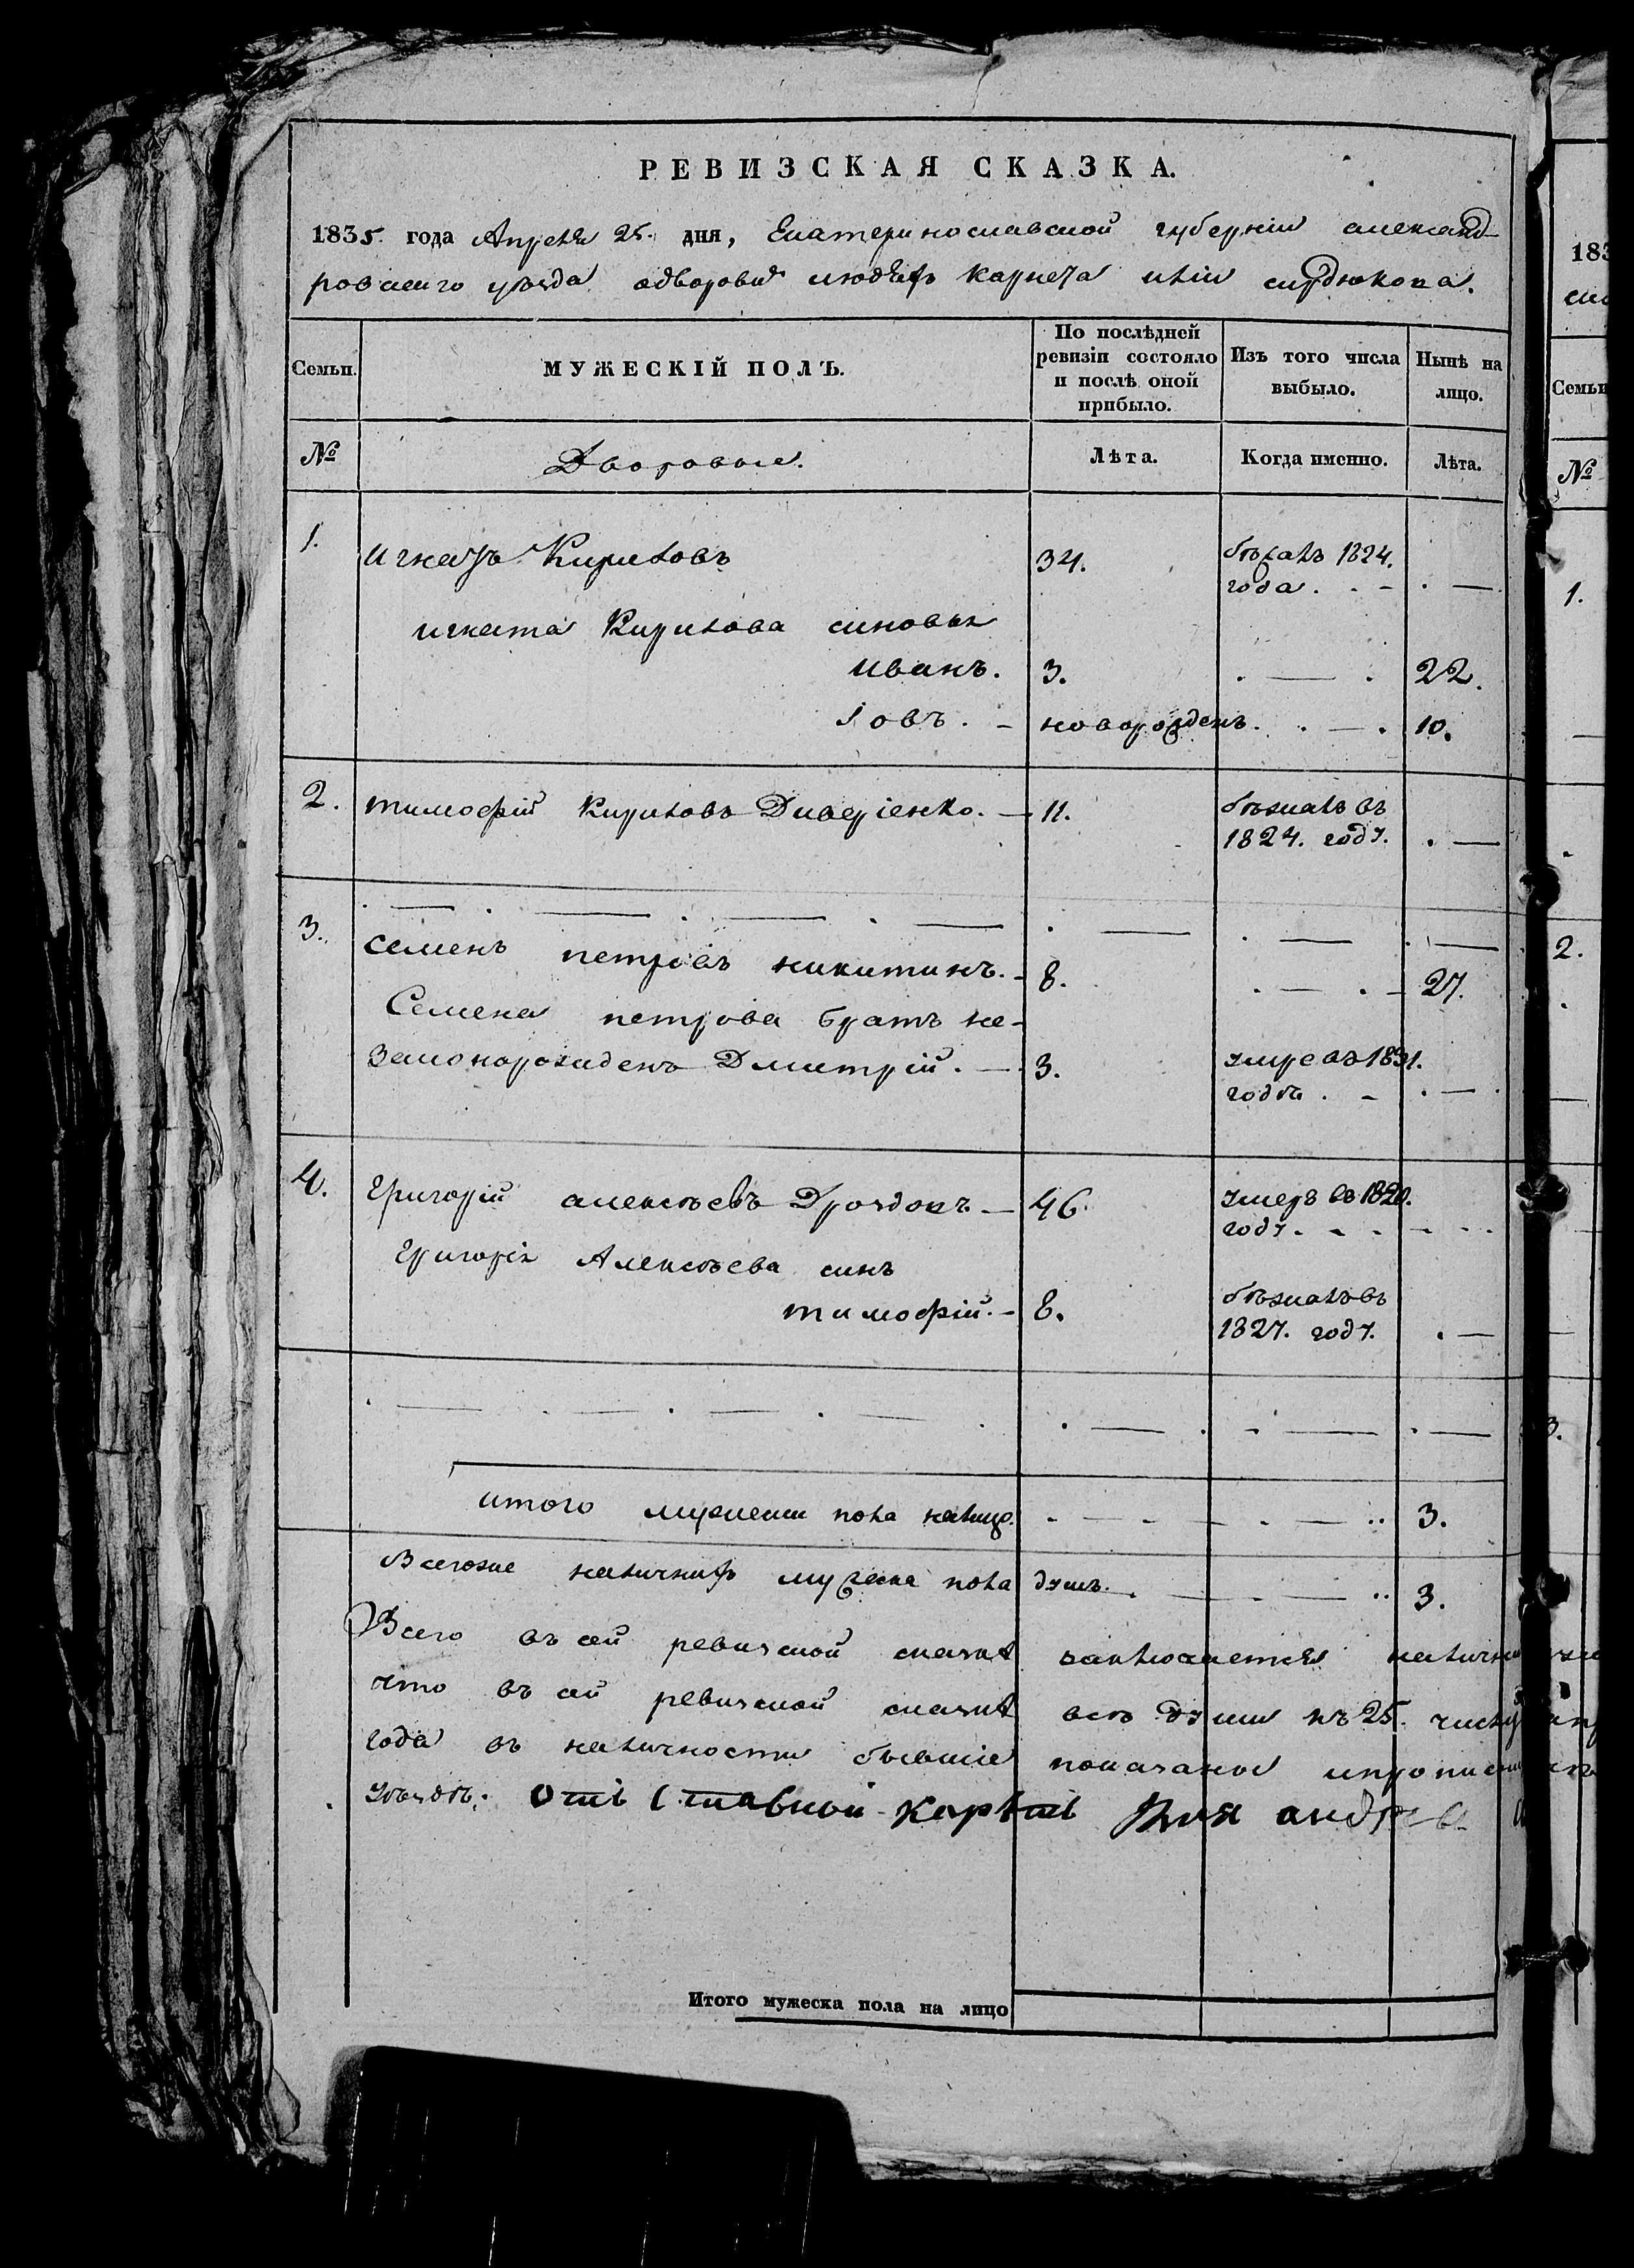 РЕВИЗСКАЯ СКАЗКА.
1835. года Апреля 25. дня, Екатеринославской губернии александ-
ровского уезда одворовых людехъ корнета сердюкова.
Семьи.
МУЖЕСКІЙ ПОЛЪ.
По послѣдней ревизіи состояло и послѣ оной прибыло.
Изъ того числа выбыло.
Нынѣ на лицо.
Семьи
№
Дворовые.
Лѣта.
Когда именно.
Лѣта.
№
1. игнатъ Кириловъ 34. бѣжалъ 1824.
года
игната Кирилова синовья
иванъ. 3. 22.
Іовъ. новорожденъ. 10.
2. тимофій Кириловъ 11. бѣжалъ въ
1824. году.
3. семенъ петровъ никитинъ. 8. 27.
Семена петрова братъ не-
законорожденъ Дмитрій. 3. умре въ 1831.
годѣ
4. григорій алексѣевъ Дроздокъ 46. умеръ въ 1820.
году.
григорія Алексѣева синъ
тимофій. 8. бѣжалъ въ
1827. году.
итого мужеска пола налицо. 3.
Всегоже наличнихъ мужеска пола душъ. 3.
Всего въ сей ревизской сказкѣ заключается
что въ сей ревизской сказкѣ всѣ души къ 25. числу
года въ наличности бывшіе показаны
уѣздѣ.
Итого мужеска пола на лицо